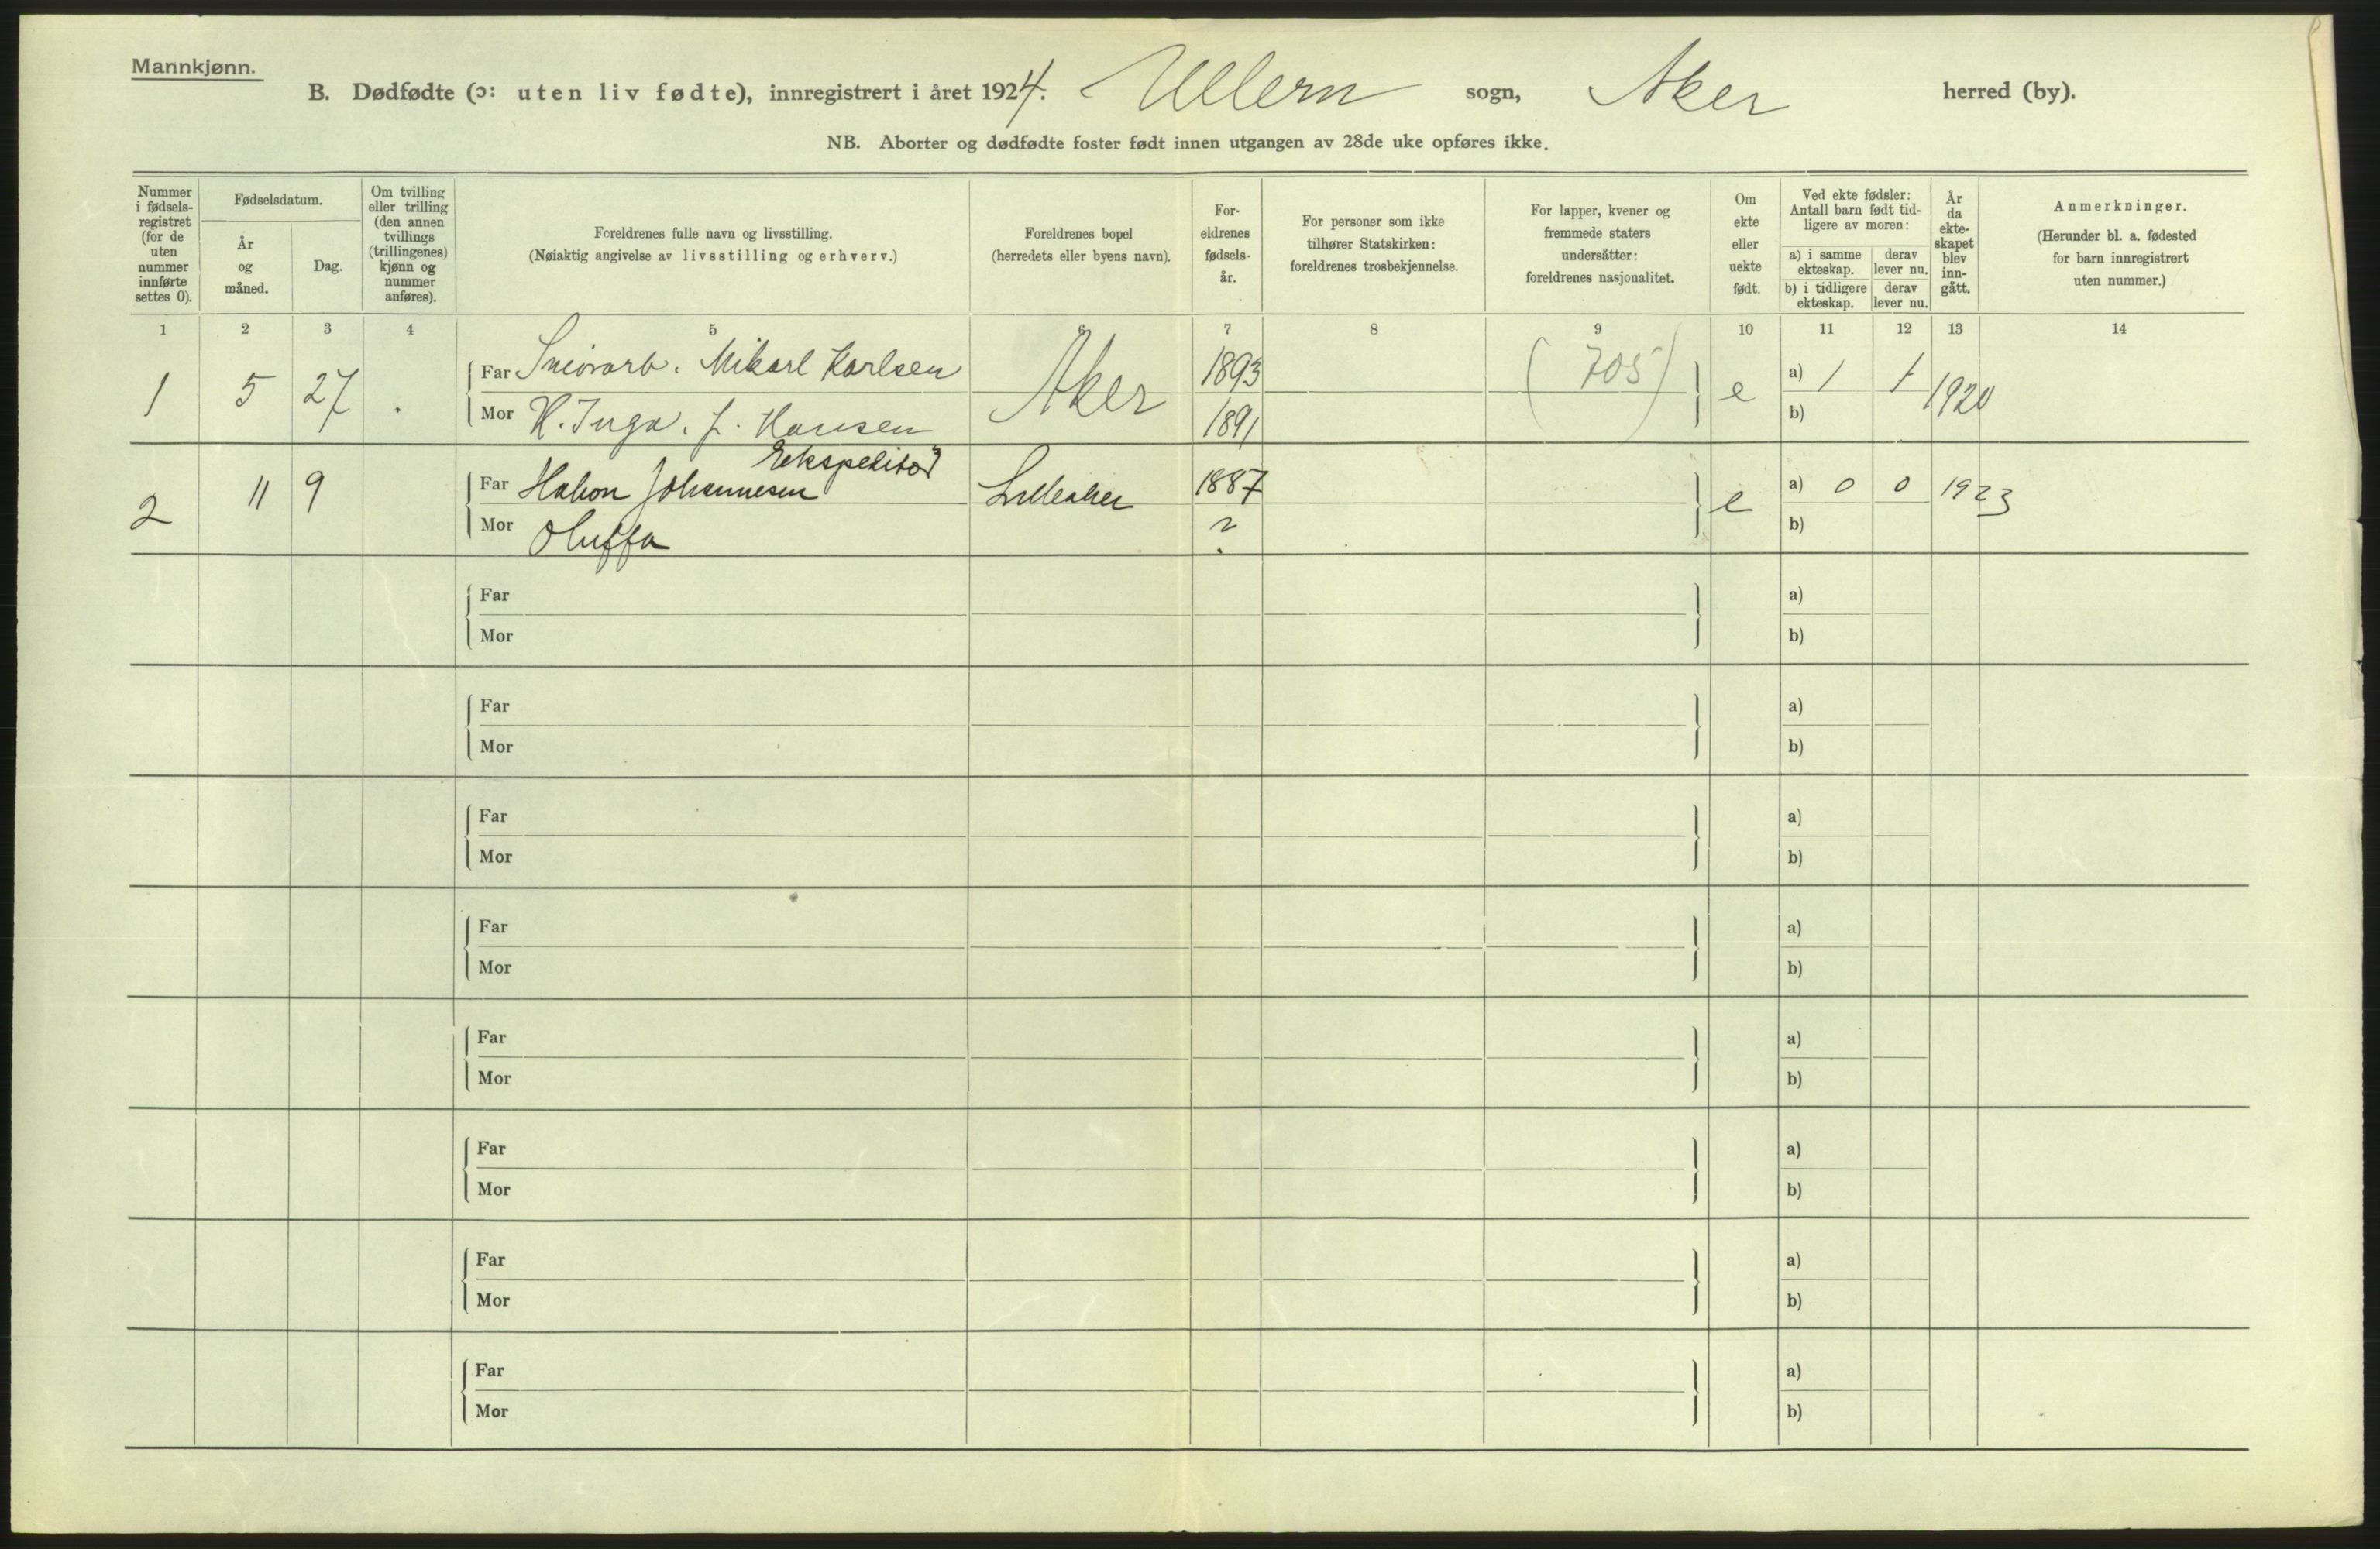 Mannkjønn.
B. Dødfødte (ɔ: uten liv fødte), innregistrert i året 1924. Ullern sogn, Aker herred (by).
NB. Aborter og dødfødte foster født innen utgangen av 28de uke opføres ikke.
Nummer i fødsels-registret (for de uten nummer innførte settes 0).
Fødselsdatum.
År og måned.
Dag.
Om tvilling eller trilling (den annen tvillings (trillingenes) kjønn og nummer anføres).
Foreldrenes fulle navn og livsstilling.
(Nøiaktig angivelse av livsstilling og erhverv.)
Foreldrenes bopel
(herredets eller byens navn).
For-eldrenes fødsels-år.
For personer som ikke tilhører Statskirken: foreldrenes trosbekjennelse.
For lapper, kvener og fremmede staters undersåtter: foreldrenes nasjonalitet.
Om ekte eller uekte født.
Ved ekte fødsler: Antall barn født tid-ligere av moren:
a) i samme ekteskap.
derav lever nu.
b) i tidligere ekteskap.
derav lever nu.
År da ekte-skapet blev inn-gått.
Anmerkninger.
(Herunder bl. a. fødested for barn innregistrert uten nummer.)
1 2 3 4 5 6 7 8 9 10 11 12 13 14
1 5 27 . Far Mikarl Karlsen Aker 1893 (705) e a) 1 1 1920
Mor H. Inga. J. Hansen 1891 b)
Ekspeditør
2 11 9 Far Hakon Johannesen Lilleaker 1887 e a) 0 0 1923
Mor Oluffa ? b)
Far a)
Mor b)
Far a)
Mor b)
Far a)
Mor b)
Far a)
Mor b)
Far a)
Mor b)
Far a)
Mor b)
Far a)
Mor b)
Far a)
Mor b)